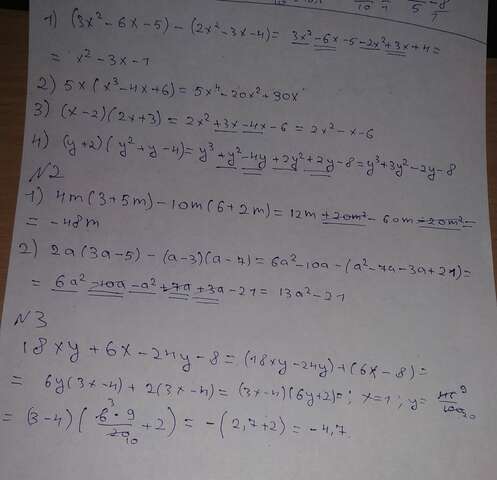 1) (3x²-6x-5)-(2x²-3x-4)= 3x²-6x-5-2x²+3x+4=
= x²-3x-1
2) 5x(x³-4x+6)=5x⁴-20x²+30x
3) (x-2)(2x+3)=2x²+3x-4x-6=2x²-x-6
4) (y+2)(y²+y-4)=y³+y²-4y+2y²+2y-8=y³+3y²-2y-8
N2
1) 4m(3+5m)-10m(6+2m)=12m+20m²-60m-20m²=
= -48m
2) 2a(3a-5)-(a-3)(a-7)=6a²-10a-(a²-7a-3a+21)=
= 6a²-10a-a²+7a+3a-21=13a²-21
N3
18xy+6x-24y-8=(18xy-24y)+(6x-8)=
= 6y(3x-4)+2(3x-4)=(3x-4)(6y+2)=; x=1; y=
=(3-4)(6³·9/20 10+2)=-(2,7+2)=-4,7.